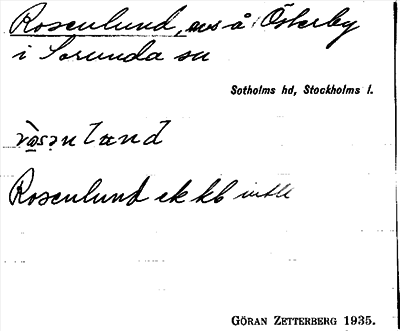 Rosenlund, avs å Österby
i Sorunda sn
Sotholms hd, Stockholms l.
ròsənlund
Rosenlund ek kb
GÖRAN ZETTERBERG 1935.